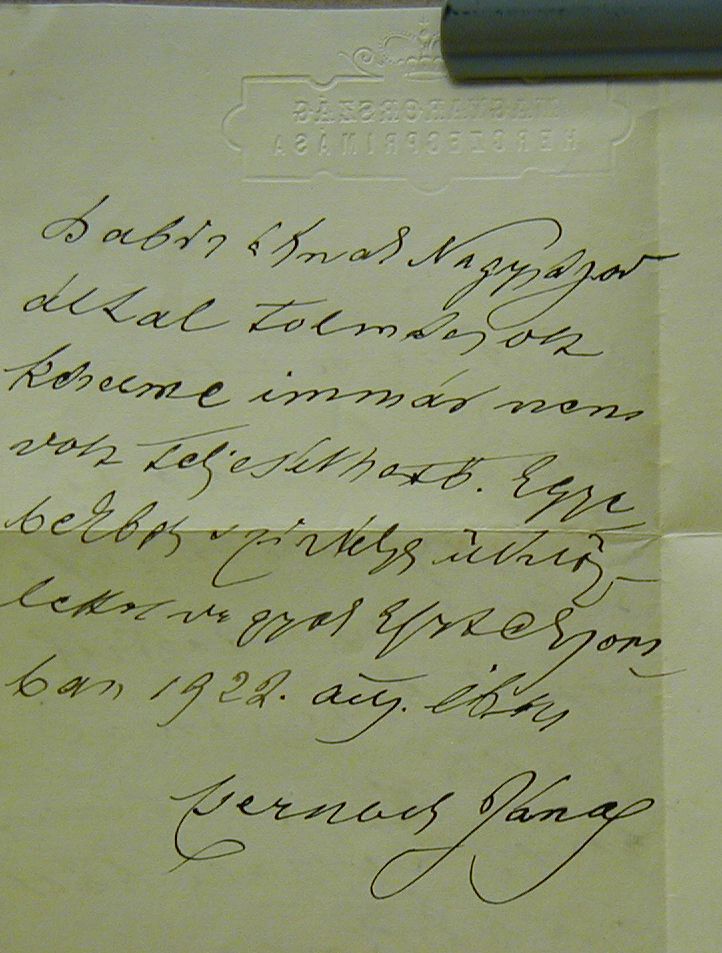 MAGYARORSZÁG
HERCZEGPRIMÁSA
Nagyságod
által tolmácsolt
kérelme immár nem
volt teljesíthető. Egye-
bekben szívélyes üdvöz-
lettel vagyok Esztergom-
ban 1922. aug.
Csernoch János